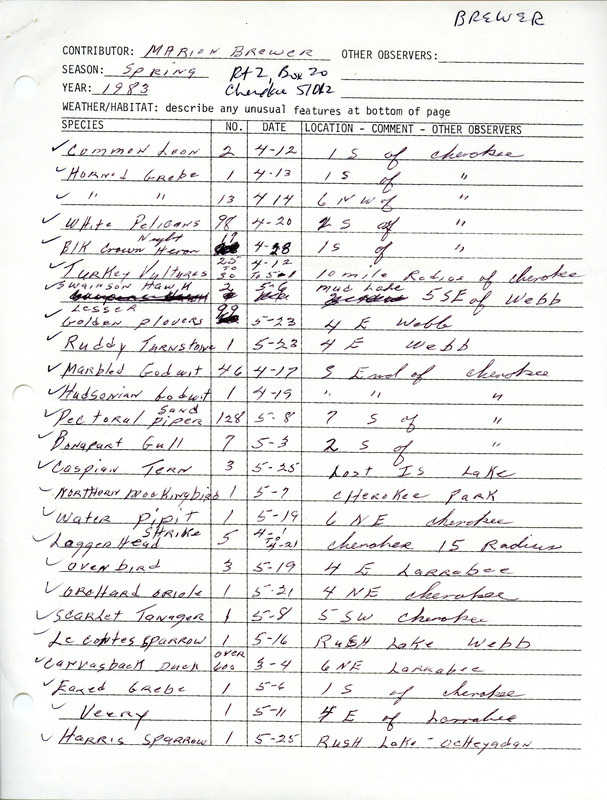 BREWER
CONTRIBUTOR: MARION BREWER OTHER OBSERVERS:
SEASON: SPRING Rt 2, Box 20
YEAR: 1983 Cherokee 51012
WEATHER/HABITAT: describe any unusual features at bottom of page
SPECIES NO. DATE LOCATION - COMMENT - OTHER OBSERVERS
✓ Common Loon 2 4-12 1 S of Cherokee
✓ Horned Grebe 1 4-13 1 S of "
✓ " " 13 4 14 6 NW of "
✓ White Pelicans 98 4-20 2 S of "
✓ Blk Crown Night Heron 4-28 1 S of "
✓ Turkey Vultures 25 to 30 4-12 to 5-1 10 mile Radius of Cherokee
✓ Swainson Hawk 2 5-6 Mud Lake 5 SE of Webb
✓ Lesser Golden Plovers 99 5-23 4 E Webb
✓ Ruddy Turnstone 1 5-23 4 E Webb
✓ Marbled Godwit 46 4-17 S End of Cherokee
✓ Hudsonian Godwit 1 4-19 " " "
✓ Pectoral Sand piper 128 5-8 7 S of "
✓ Bonapart Gull 7 5-3 2 S of "
✓ Caspian Tern 3 5-25 Lost Is Lake
✓ Northern Mockingbird 1 5-7 Cherokee Park
✓ Water Pipit 1 5-19 6 NE Cherokee
✓ Loggerhead Shrike 5 4-1 to 4-21 Cherokee 15 Radius
✓ Ovenbird 3 5-19 4 E Larrabee
✓ Orchard Oriole 1 5-21 4 NE Cherokee
✓ Scarlet Tanager 1 5-8 5 SW Cherokee
✓ Le Contes Sparrow 1 5-16 Rush Lake Webb
✓ Canvasback Duck over 600 3-4 6 NE Larrabee
✓ Eared Grebe 1 5-6 1 S of Cherokee
✓ Veery 1 5-11 4 E of Larrabee
✓ Harris Sparrow 1 5-25 Rush Lake - Ocheyadan